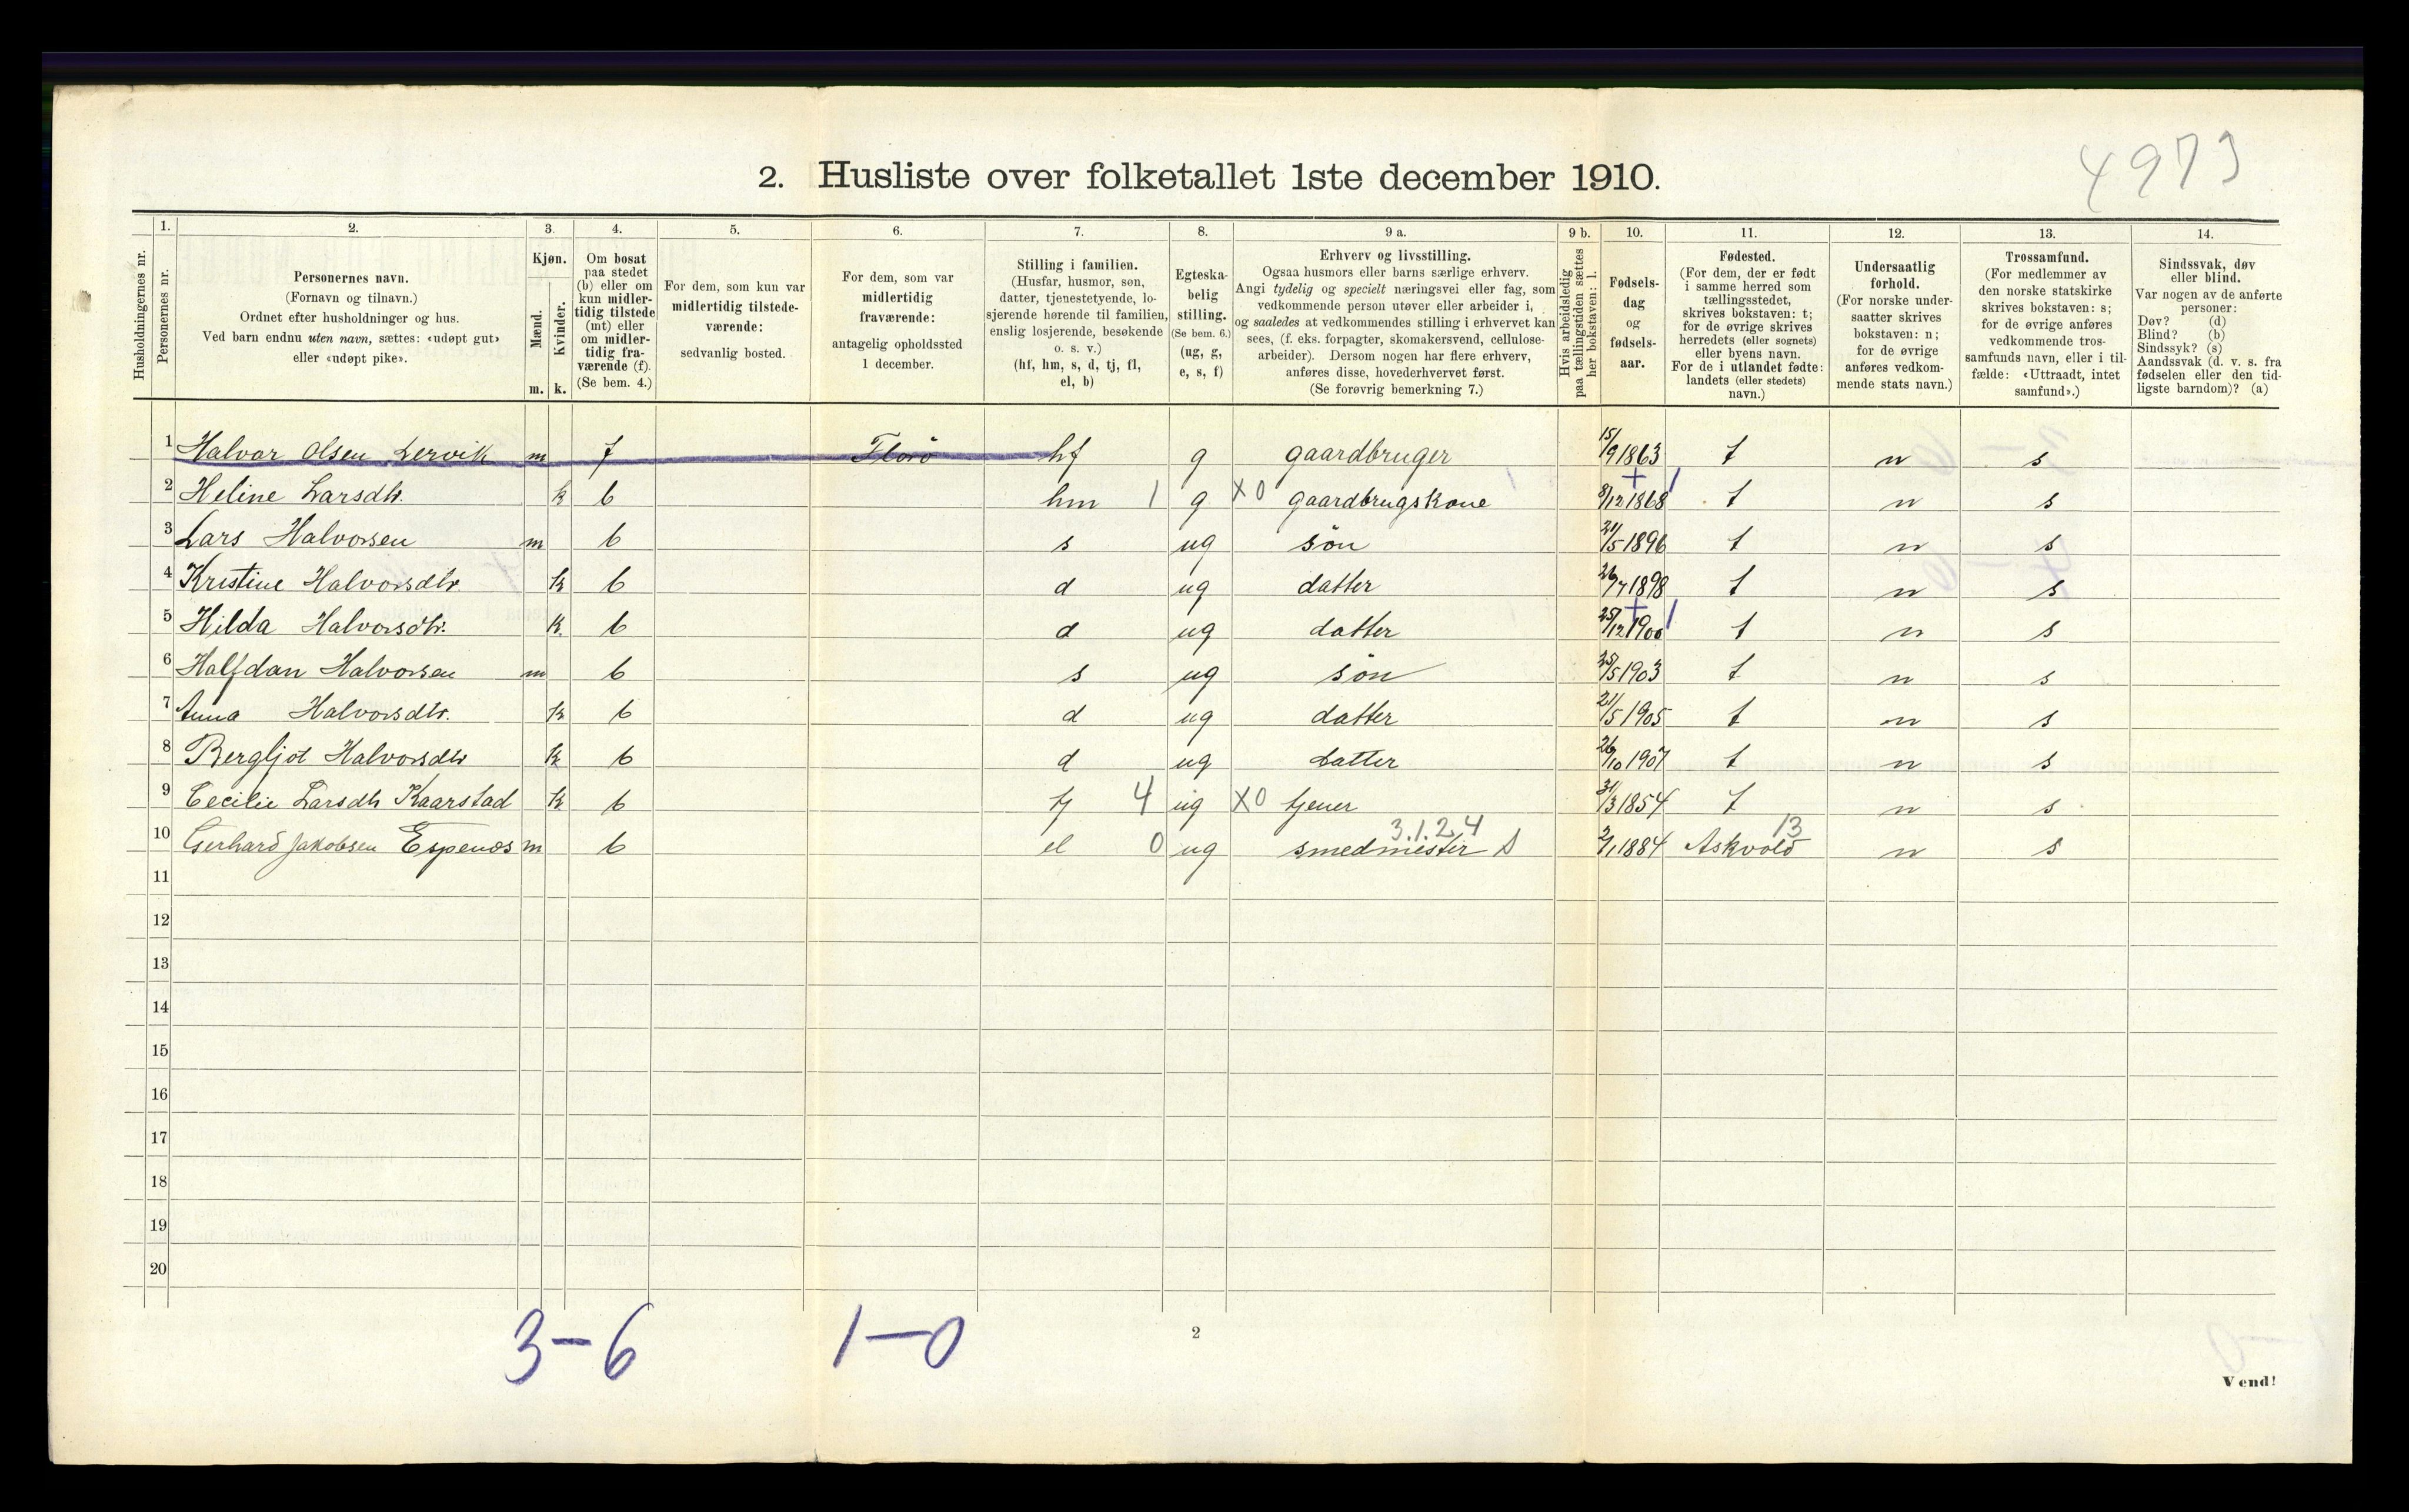 4973
2. Husliste over folketallet 1ste december 1910.
Husholdningernes nr.
1.
Personernes nr.
2.
Personernes navn.
(Fornavn og tilnavn.)
Ordnet efter husholdninger og hus.
Ved barn endnu uten navn, sættes: «udøpt gut»
eller «udøpt pike».
3.
Kjøn.
Mænd.
Kvinder.
m. k.
4.
Om bosat
paa stedet
(b) eller om
kun midler-
tidig tilstede
(mt) eller
om midler-
tidig fra-
værende (f).
(Se bem. 4.)
5.
For dem, som kun var
midlertidig tilstede-
værende:
sedvanlig bosted.
6.
For dem, som var
midlertidig
fraværende:
antagelig opholdssted
1 december.
7.
Stilling i familien.
(Husfar, husmor, søn,
datter, tjenestetyende, lo-
sjerende hørende til familien,
enslig losjerende, besøkende
o. s. v.)
(hf, hm, s, d, tj, fl,
el, b)
8.
Egteska-
belig
stilling.
(Se bem. 6.)
(ug, g,
e, s, f)
9 a.
Erhverv og livsstilling.
Ogsaa husmors eller barns særlige erhverv.
Angi tydelig og specielt næringsvei eller fag, som
vedkommende person utøver eller arbeider i,
og saaledes at vedkommendes stilling i erhvervet kan
sees, (f. eks. forpagter, skomakersvend, cellulose-
arbeider). Dersom nogen har flere erhverv,
anføres disse, hovederhvervet først.
(Se forøvrig bemerkning 7.)
9 b.
Hvis arbeidsledig
paa tællingstiden sættes
her bokstaven: l.
10.
Fødsels-
dag
og
fødsels-
aar.
11.
Fødested.
(For dem, der er født
i samme herred som
tællingsstedet,
skrives bokstaven: t;
for de øvrige skrives
herredets (eller sognets)
eller byens navn.
For de i utlandet fødte:
landets (eller stedets)
navn.)
12.
Undersaatlig
forhold.
(For norske under-
saatter skrives
bokstaven: n;
for de øvrige
anføres vedkom-
mende stats navn.)
13.
Trossamfund.
(For medlemmer av
den norske statskirke
skrives bokstaven: s;
for de øvrige anføres
vedkommende tros-
samfunds navn, eller i til-
fælde: «Uttraadt, intet
samfund».)
14.
Sindssvak, døv
eller blind.
Var nogen av de anførte
personer:
Døv? (d)
Blind? (b)
Sindssyk? (s)
Aandssvak (d. v. s. fra
fødselen eller den tid-
ligste barndom)? (a)
1 Halvor Olsen Lervik m f Florö hf g gaardbruger 15/9 1863 t n s
2 Heline Larsdtr. k b hm 1 g X0 gaardbrugskone 8/12 1868 t n s
3 Lars Halvorsen m b s ug sön 21/5 1896 t n s
4 Kristine Halvorsdtr. k b d ug datter 26/7 1898 t n s
5 Hilda Halvorsdtr. k. b d ug datter 25/12 1900 t n s
6 Halfdan Halvorsen m b s ug sön 25/5 1903 t n s
7 Anna Halvorsdtr. k b d ug datter 21/5 1905 t n s
8 Bergljot Halvorsdtr k b d ug datter 26/10 1907 t n s
9 Cecilie Larsdtr Kaarstad k b tj 4 ug X0 tjener 31/3 1854 t n s
3.1.2.4 13
10 Gerhard Jakobsen Espenes m b el 0 ug smedmester S 2/1 1884 Askvold n s
11
12
13
14
15
16
17
18
19
20
3-6 1-0
2
Vend!